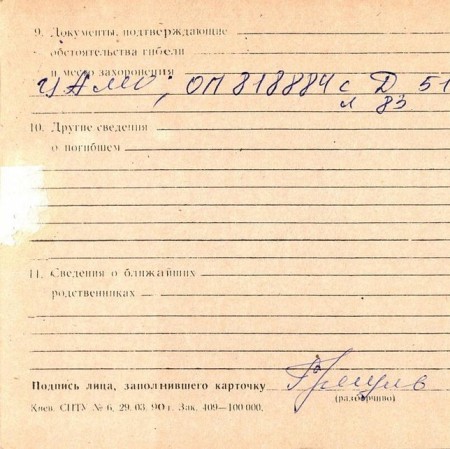 9. Документы, подтверждающие
обстоятельства гибели
и место захоронения
ЦАМО, ОП 818884 с Д. 51
л 83
10. Другие сведения
о погибшем
11. Сведения о ближайших
родственниках
Подпись лица, заполнившего карточку
(разборчиво)
Киев. СПТУ № 6, 29. 03. 90 г. Зак. 409—100 000.